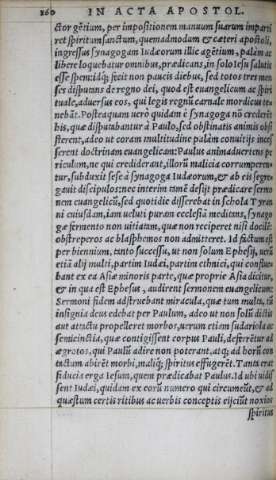 260 IN ACTA APOSTOL.
ctor gẽtium, per impositionem manuum suarum imparti
ret spiritum sanctum, quemadmodum & cæteri apostoli,
ingressus synagogam Iudæorum illic agẽtium, palàm ac
libere loquebatur omnibus, prædicans, in solo Iesu salutis
esse spem: idq́; fecit non paucis diebus, sed totos tres men
ses disputans de regno dei, quod est euangelicum ac spiri
tuale, aduersus eos, qui legis regnũ carnale mordicus te
nebãt. Posteaquam uerò quidam è synagoga nõ crederẽt
his, quæ disputabantur à Paulo, sed obstinatis animis obsi
sterent, adeo ut coram multitudine palàm conuitijs inces
serent doctrinam euangelicam: Paulus animaduertens pe
riculum, ne qui crediderant, illorũ malicia corrumperen
tur, subduxit sese à synagoga Iudæorum, & ab eis segre
gauit discipulos: nec interim tamẽ desijt prædicare sermo
nem euangelicũ, sed quotidie disserebat in schola Tyran
ni cuiusdam, iam ueluti puram ecclesiã meditans, synago
gæ fermento non uitiatam, quæ non reciperet nisi dociles:
obstreperos ac blasphemos non admitteret. Id factum est
per biennium, tanto successu, ut non solum Ephesij, uerũ
etiã alij multi, partim Iudæi, partim ethnici, qui confitue
bant ex ea Asiæ minoris parte, quæ proprie Asia dicitur,
& in qua est Ephesus, audirent sermonem euangelicum:
Sermoni fidem adstruebant miracula, quæ tum multa, tũ
insignia deus edebat per Paulum, adeo ut non solũ dictis
aut attactu propelleret morbos, uerum etiam sudariola ac
semicinctia, quæ contigissent corpus Pauli, deferrẽtur ad
ægrotos, qui Paulũ adire non poterant, atq́; ad horũ con
tactum abirẽt morbi, maliq́; spiritus effugerẽt. Tanta erat
fiducia erga Iesum, quem prædicabat Paulus. Id ubi uidis
sent Iudæi, quidam ex eorũ numero qui circumeũt, & ad
quæstum certis ritibus ac uerbis conceptis eijciũt noxios
spiritus